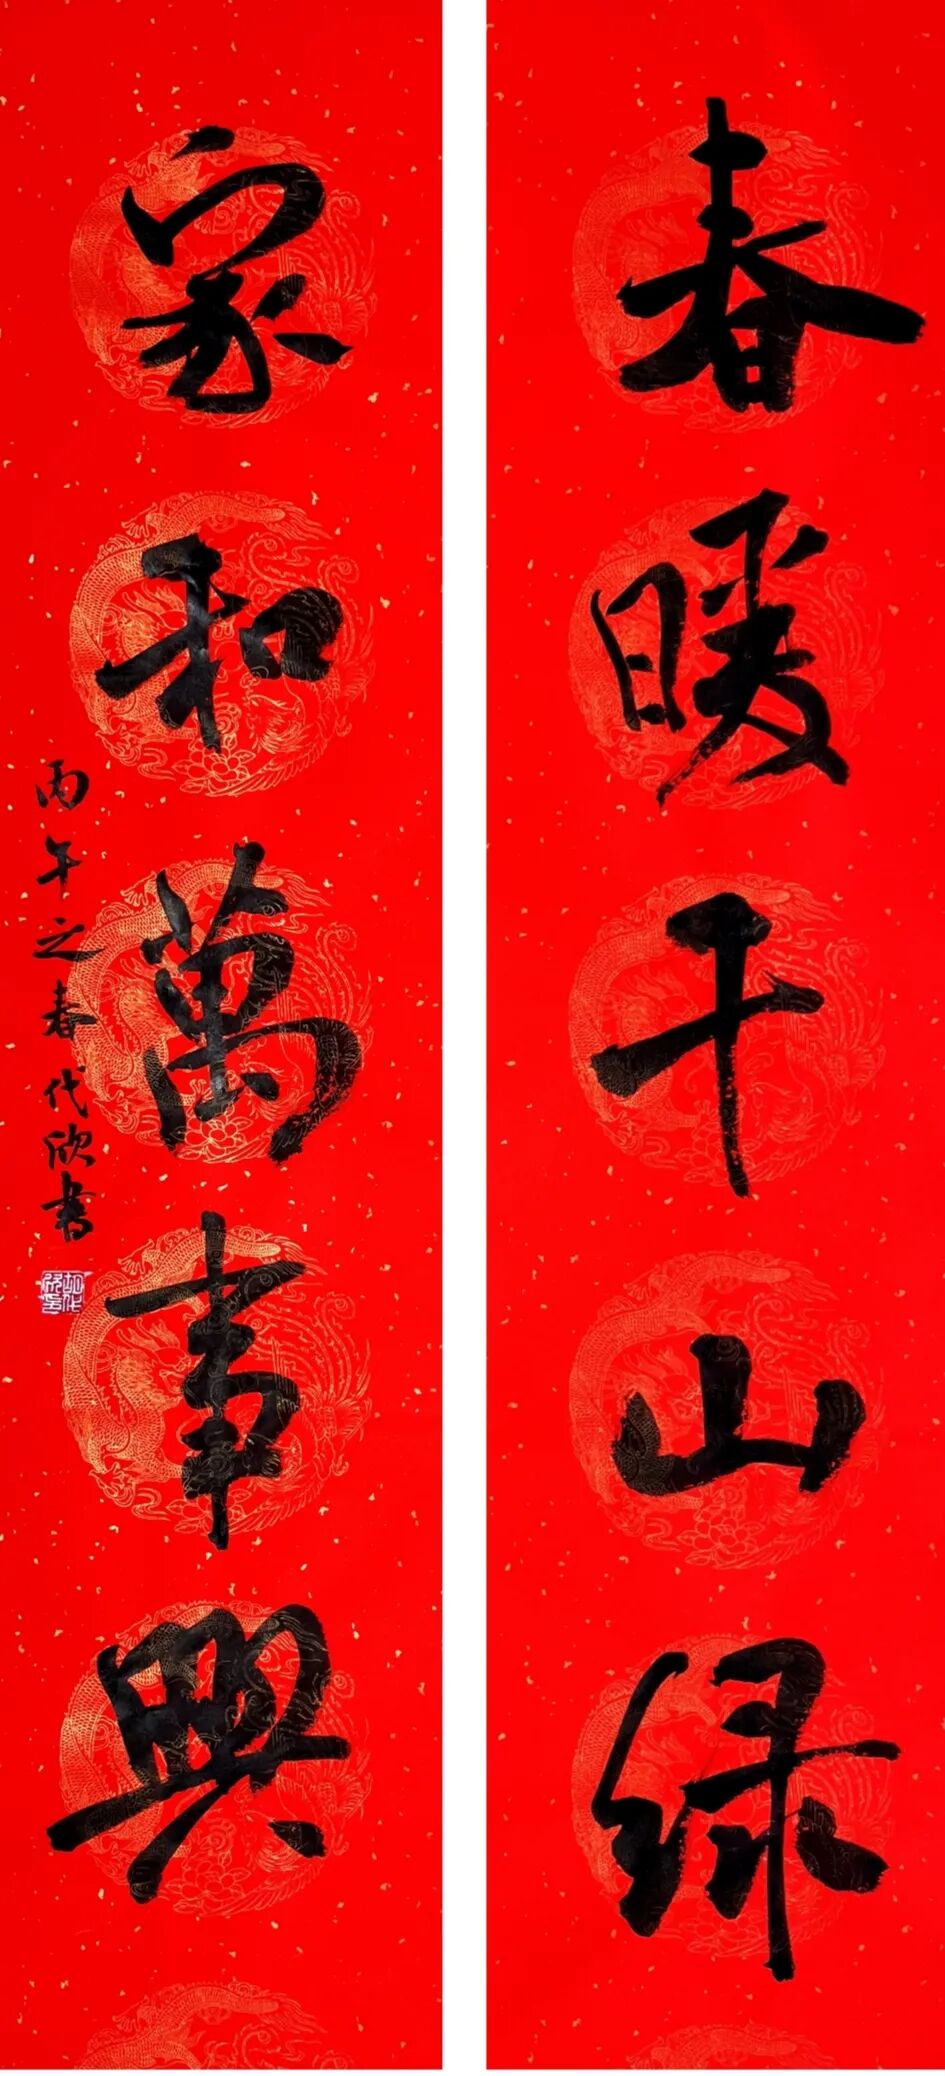 春暖千山绿
家和萬事興
丙午之春代欣書